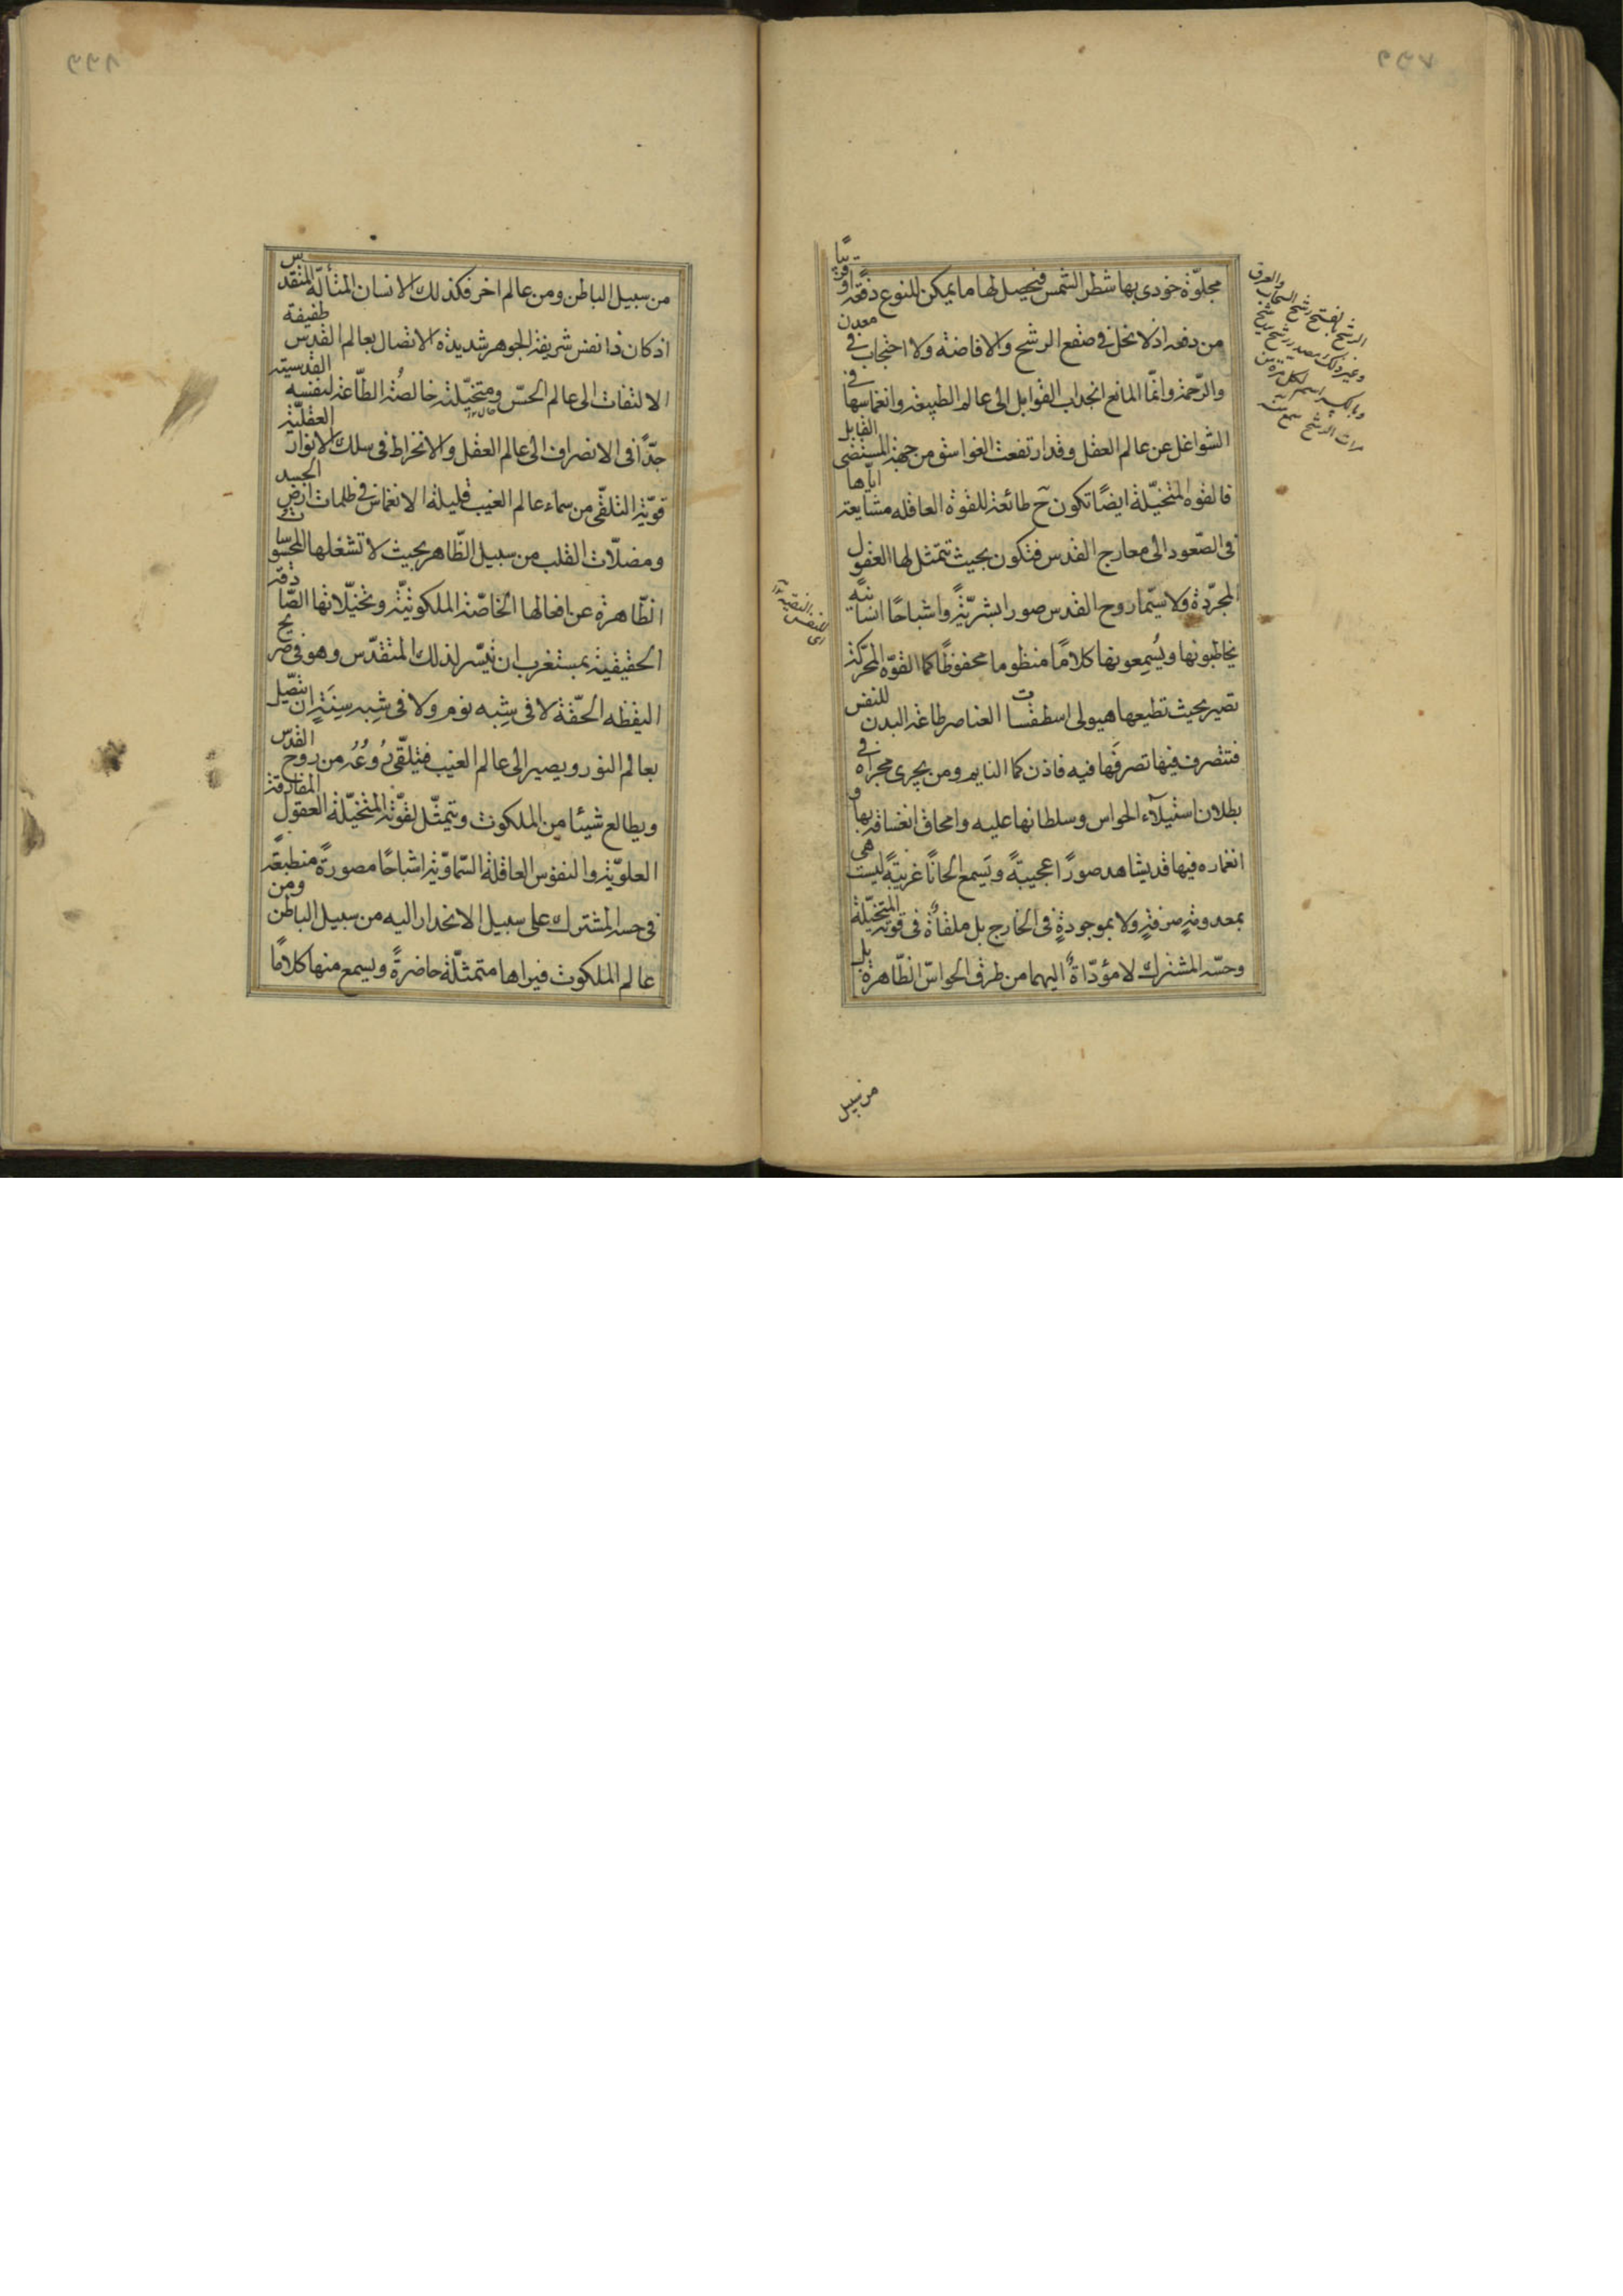 ٩٩٧
مجلوّة حوذى بها شطر الشمس فيحصل لها ما يمكن للنوع دفعةً او قريبًا
من دفعه اذ لا بخل فى صقع الرشح والافاضة ولا احتجاب فى معدن
والرّحمة وانّما المانع انجداب القوابل الى عالم الطبيعة وانغماسها فى
الشواغل عن عالم العقل وقد ارتفعت الغواسق من جهة المستضى القابل
فالقوه المتخيّلة ايضًا تكون ح طائعة للقوة العاقله مشايعة ايّاها
فى الصّعود الى معارج القدس فتكون بحيث تتمثل لها العقول
المجرّدة ولا سيّما روح القدس صورا بشريّةً واشباحًا انسانيّه
يخاطبونها ويُسمِعونها كلامًا منظوما محفوظًا كما القوّه المحرّكة
تصير بحيث تطيعها هيولى اسطقسات العناصر طاعة البدن للنفس
فتتصرف فيها تصرفَها فيه فاذن كما النايم ومن يجرى مجراه فى
بطلان استيلآء الحواس وسلطانها عليه وامحاق انغساقه بها و
انغماره فيها قد يشاهد صورًا عجيبةً ويَسمع الحانًا غريبةً ليست هى
بمعدومةٍ صرفةٍ ولا بموجودةٍ فى الخارج بل ملقاةٌ فى قوته المتخيّلة
وحسّه المشترك لا مؤدّاةٌ اليهما من طرق الحواسّ الظّاهرة بل
من سبيل
الرشح بفتح رشح السحاب والعرق
وغير ذلك مصدر رشح يرشح
وبالكسر اسم لكل مرة من
مرات الرشح سمع منه
اى للنفس النقية
٩٩٨
من سبيل الباطن ومن عالم اخر فكذلك الانسان المتألّه المتقدس
اذ كان ذا نفس شريفة الجوهر شديدة الاتصال بعالم القدس طفيفة
الالتفات الى عالم الحسّ ومتخيّلته خالصُة الطّاعة لنفسه القدسيته
جدّاً فى الانصراف الى عالم العقل والانخراط فى سلك الانوار العقليّة
قويّة التلقّى من سماء عالم الغيب قليلة الانغماس فى ظلمات ارض الجسد
ومضلّات القلب من سبيل الظّاهر بحيث لا تشغلها المحسوسات
الظّاهرة عن افعالها الخاصّة الملكوتيّة وتخيّلاتها الصّادقة
الحقيقية بمستغرب ان تيسّر لذلك المتقدّس وهو فى صريح
اليقظه الحقّة لا فى شِبه نوم ولا فى شِبه سِنَةٍ ان يتصّل
بعالم النور ويصير الى عالم الغيب فيتلقّى رُوعُه من روح القدس
ويطالع شيئا من الملكوت ويتمثّل لقوّته المتخيّلة العقول المفارقة
العلويّة والنفوس العاقلة السّماويّة اشباحًا مصورةً منطبعةً
فى حسه المشترك على سبيل الانحدار اليه من سبيل الباطن ومن
عالم الملكوت فيراها متمثلّة حاضرةً ويسمع منها كلامًا